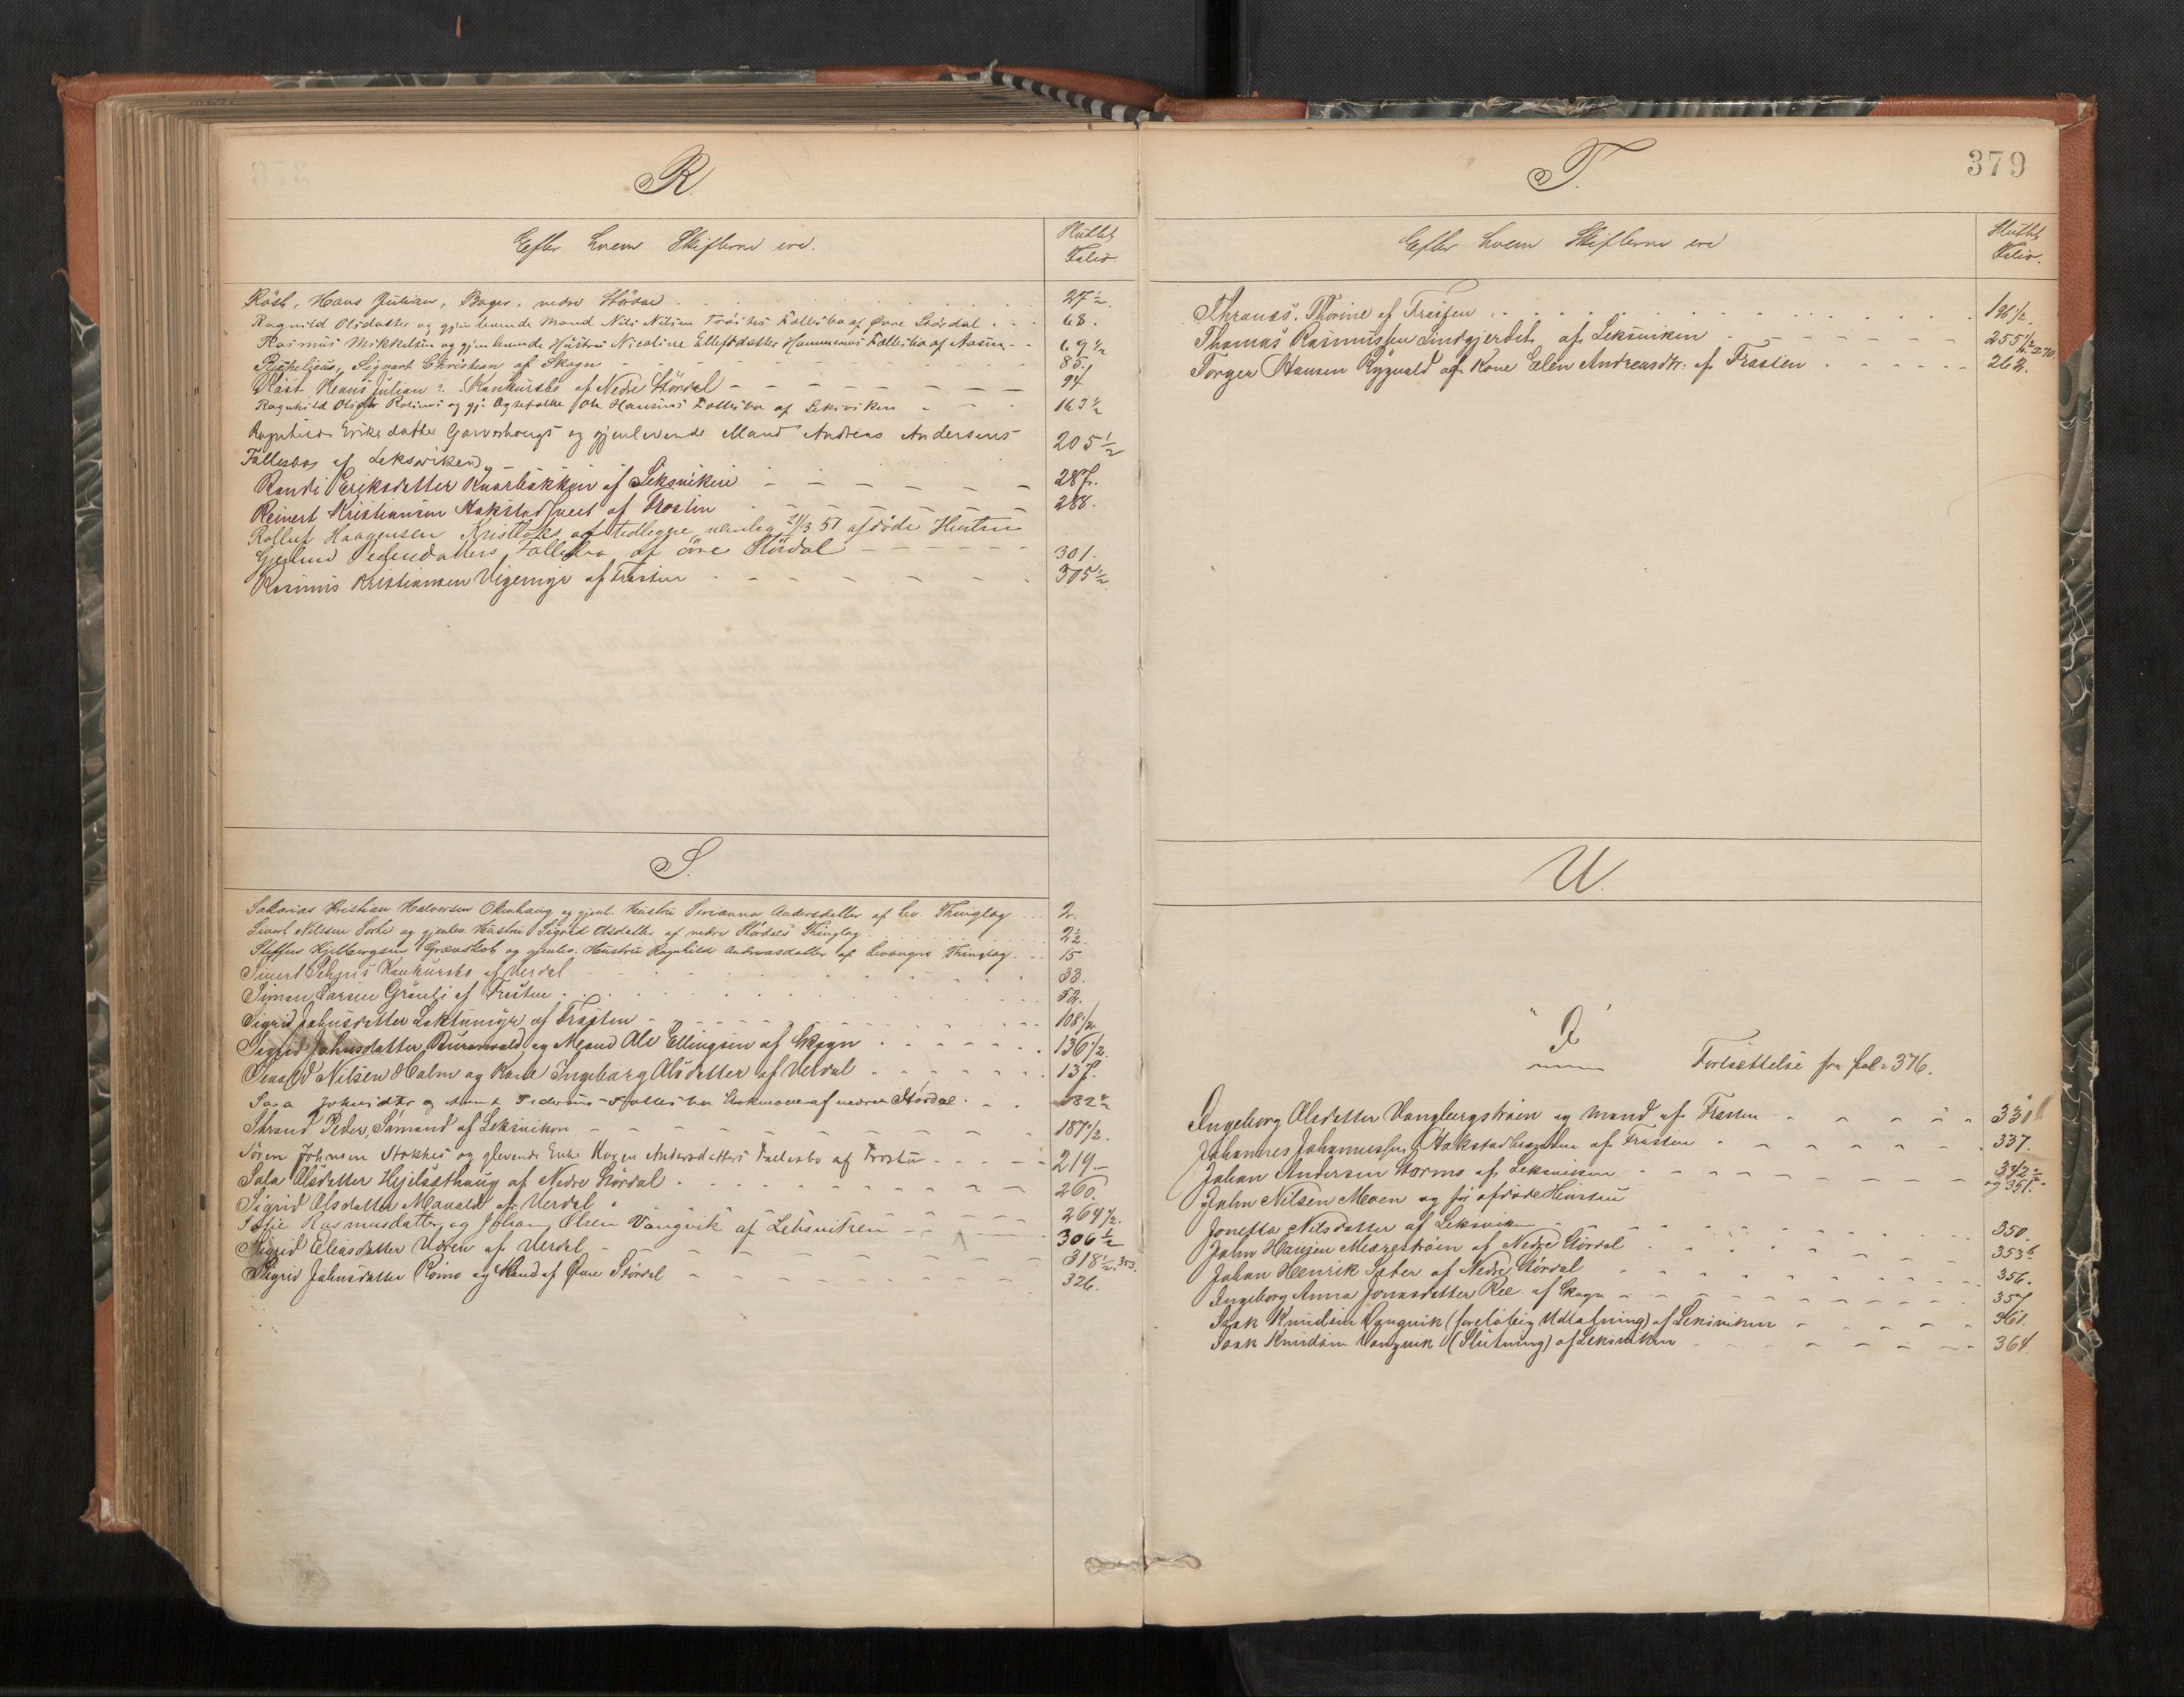 R.
Efter hvem Skifterne ere.
Sluttet
Folio.
Röst, Hans Julian, Bager, nedre Stördal 27½.
Ragnild Olsdatter og gjenlevende Mand Nils Nilsen Fællesbo af Øvre Stördal 68.
Rasmus Mikkelsen og gjenlevende Hustru Nicoline Ellefsdatter Hammernes Fællesbo af Aasen 69½
Richelieus, Sigvart Christian af Skogn 85.
Röst Hans Julian 2. Konkursbo af Nedre Stördal 94
Ragnhild Olsdtr og gj. Ægtefælle Ole Hansens Fællesbo af Leksviken 163½
Ragnhild Eriksdatter Garvorhougs og gjenlevende Mand Andreas Andersens 205½
Fællesbo af Leksviken
Randi Eriksdatter Kvarbakken af Leksviken 287.
Reinert Kristiansen Hokstadhveet af Frosten 288.
Rolluf Haagensen af tidligere, nemlig 21/3 51 afdöde Hustru
Gjertrud Pedersdatters Fællesbo af övre Stördal 301.
Rasmus Kristiansen Vigemyr af Frosten 305½
S.
Sakarias Kristian Halvorsen Okenhaug og gjenl. Hustru Serianna Andersdatter af Lev. Thinglag 2.
Sivert Nilssen og gjenlev. Hustru Sigrid Olsdatter af nedre Stördals Thinglag 2½.
Steffen Kjelbergsen Grønskob og gjenlev. Hustru Ragnhild Andreasdatter af Levangers Thinglag 15
Sivert Konkursbo af Verdal 33.
Simon Larsen af Frosten 52.
Sigrid Johnsdatter af Frosten 108½
Sigrid Johnsdatter og Mand Ole Ellingsen af Skogn 136½.
Nilsen Holm og Kone Ingeborg Olsdatter af Verdal 137.
Sara Johnsdtr og Fællesbo af nedre Stördal 182½
Strand Peder, Sömand af Leksviken 187½.
Sören Johnsen Stokkes og glevende Enke Karen Andersdatters Fællesbo af Frosten 219
Sara Olsdatter af Nedre Stördal 260.
Sigrid Olsdatter af Verdal 264½.
Sofie Rasmusdatter og Johan Olsen Vangvik af Leksviken 306½
Sigrid Eliasdatter af Verdal 318½, 353.
Sigrid Johnsdatter Roino og Mand af Övre Stördal 326.
379
T.
Efter hvem Skifterne ere
Sluttet
Folio.
Thranæs, Thorine af Frosten 196½.
Thomas Rasmussen Lindgjerdet af Leksviken 255½ 270
Torger Hansen Rygvold og Kone Elen Andreasdtr: af Frosten 262.
U.
"I"
Fortsættelse fra fol: 376.
Ingeborg Olsdatter Vangbergströen og Mand af Frosten 330
Johannes Johannessen af Frosten 337.
Johan Andersen Stormo af Leksviken 342½ og 351.
John Nilsen Moen og för afdöde Hustru
Jonetta Nilsdatter af Leksviken 350.
John Hansen af Nedre Stördal 353½
Johan Henrik Sæter af Nedre Stördal 356.
Ingeborg Anna Jonasdatter Ree af Skogn 357
Isak Knudsen Vangvik (foreløbig Udlodning) af Leksviken 361.
Isak Knudsen Vangvik (Slutning) af Leksviken 364.